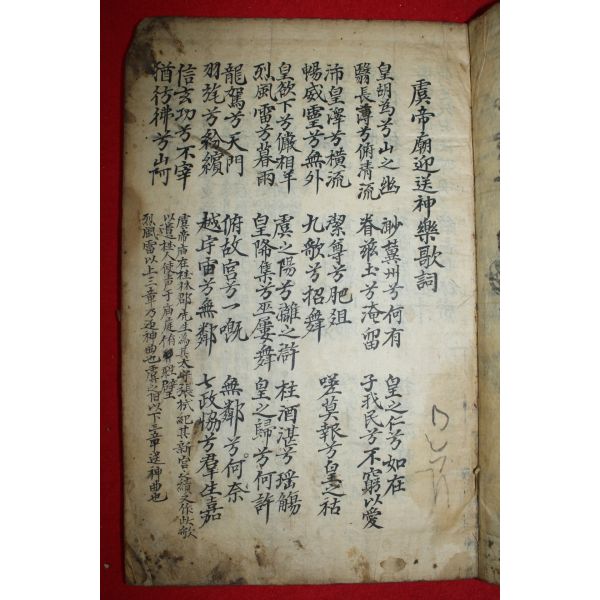 虞帝廟迎送神樂歌詞
皇胡爲兮山之幽
翳長薄兮俯清流
渺冀州兮何有
眷玆土兮淹留
皇之仁兮如在
子我民兮不窮以愛
沛皇澤兮横流
暢威靈兮無外
潔尊兮肥俎
九歌兮招舞
嗟莫報兮皇之祜
皇欲下兮儼相羊
烈風雷兮暮雨
虞之陽兮漓之滸
皇降集兮巫屢舞
桂酒湛兮瑶觴
皇之歸兮何許
龍駕兮天門
羽旄兮紛繽
俯故宮兮一慨
越宇宙兮無鄰
無鄰兮何奈
七政協兮羣生嘉
信玄功兮不宰
猶彷彿兮山阿
虞帝庙在桂林郡先生爲其太守張栻紀其新宮之績又作此歌
以遺桂人使声于庙庭侑牲璧
烈風雷以上三章乃迎神曲也虞之陽以下三章送神曲也